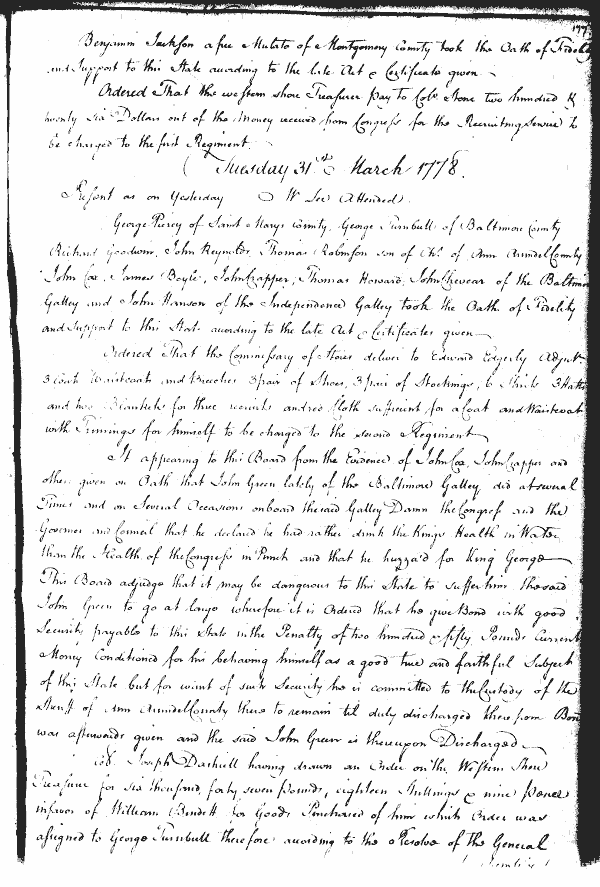 177
Benjamin Jackson a free Mulato of Montgomery County took the Oath of Fidelity
and Support to this State according to the late Act & Certificate given
Ordered That the western shore Treasurer pay to Colo. Stone two hundred &
twenty Six Dollars out of the Money received from Congress for the Recruiting Service to
be charged to the first Regiment.
Tuesday 31st March 1778.
Present as on Yesterday W Lee Attended
George Piercy of Saint Marys County, George Turnbull of Baltimore County
Richard Goodwin, John Reynolds, Thomas Robinson son of Chs. of Ann Arundel County
John Cox, James Boyle, John Crapper, Thomas Howard, John Chevear of the Baltimore
Galley and John Hanson of the Independence Galley took the Oath of Fidelity
and Support to this State according to the late Act & Certificates given
Ordered That the Commissary of Stores deliver to Edward Edgerly Adjut
3 Coats Waistcoats and Breeches 3 pair of Shoes, 3 pair of Stockings, 6 Shirts 3 Hatts
and two Blankets for three recruits and red Cloth sufficient for a Coat and Waistcoat
with Trimings for himself to be charged to the second Regiment
It appearing to this Board from the Evidence of John Cox, John Crapper and
others given on Oath that John Green lately of the Baltimore Galley, did at several
Times and on several Occasions onboard the said Galley Damn the Congress and the
Governor and Council that he declared he had rather drink the Kings Health in Water
than the Health of the Congress in Punch and that he huzza'd for King George
This Board adjudge that it may be dangerous to this State to suffer him the said
John Green to go at large wherefore it is Ordered that he give Bond with good
Security payable to this State in the Penalty of two hundred & fifty Pounds Current
Money Conditioned for his behaving himself as a good true and faithful Subject
of this State but for want of such Security he is committed to the Custody of the
Sheriff of Ann Arundel County there to remain til duly discharged there from Bond
was afterwards given and the said John Green is thereupon Discharged
Joseph Dashiell having drawn an Order on the Western Shore
Treasurer for six thousand, forty seven pounds, eighteen Shillings & nine pence
in favor of William for Goods Purchased of him which Order was
assigned to George Turnbull therefore according to the Resolve of the General